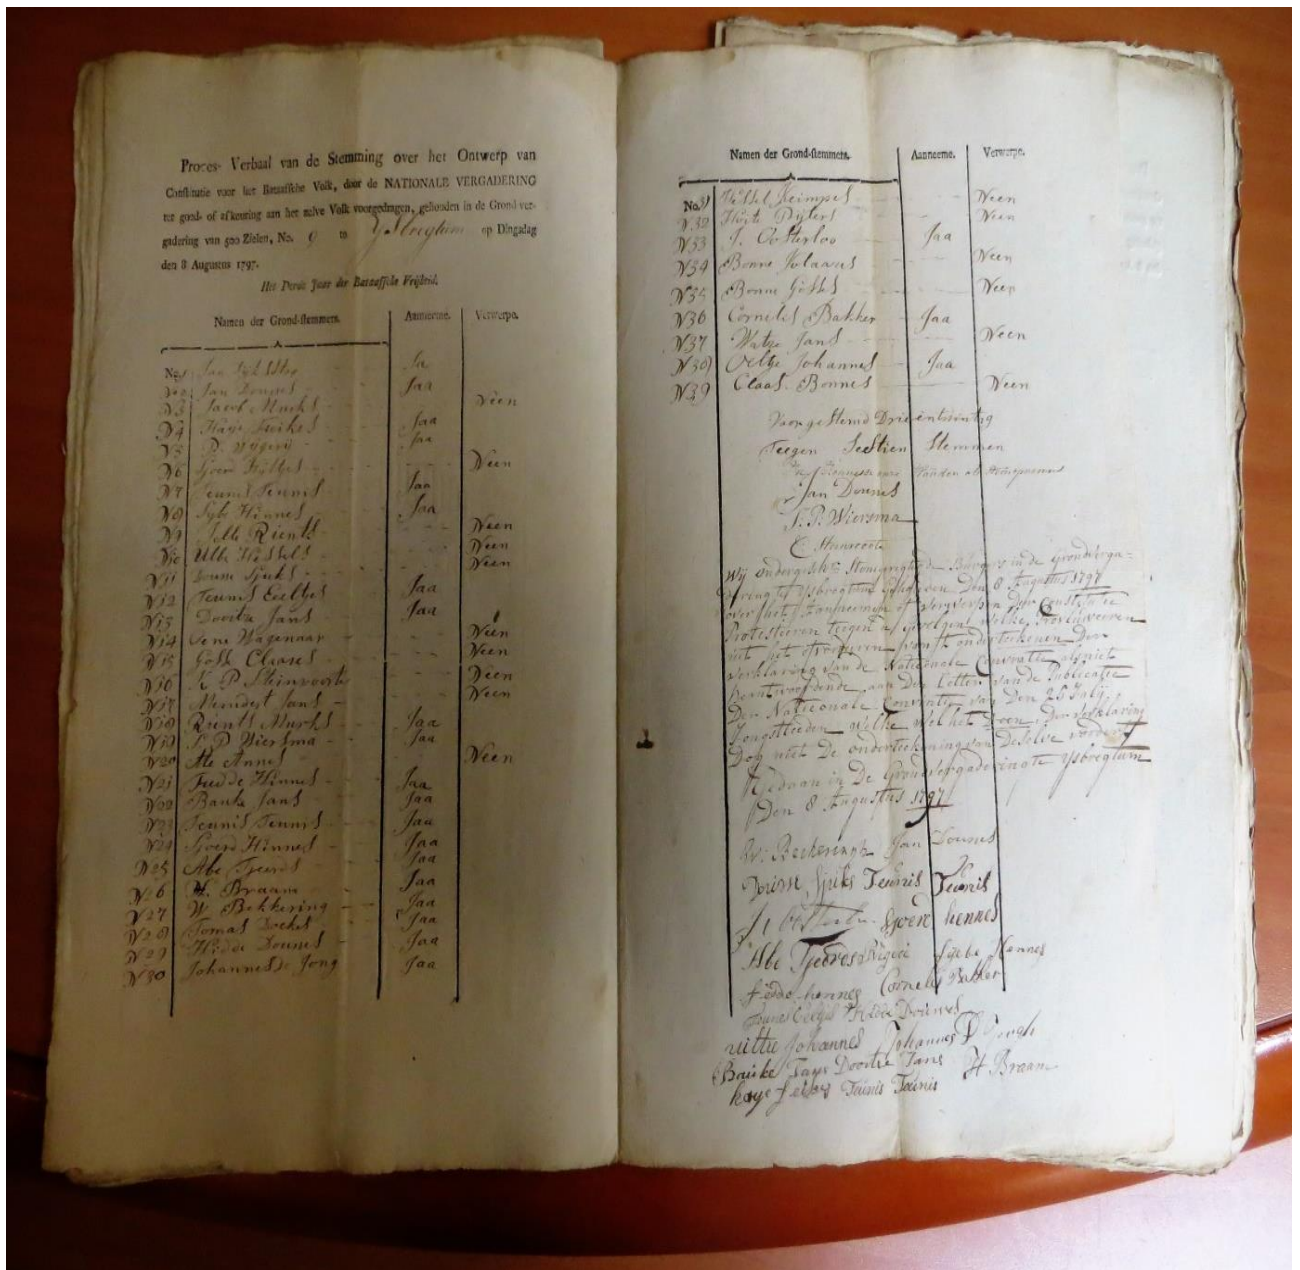 Proces-Verbaal van de Stemming over het Ontwerp van
Constitutie voor het Bataafsche Volk, door de NATIONALE VERGADERING
ter goed- of afkeuring aan het zelve Volk voorgedragen, gehouden in de Grond-ver-
gadering van 500 Zielen, No. 9 te Ysbreghtum op Dingsdag
den 8 Augustus 1797.
Het Derde Jaar der Bataafsche Vrijheid.
Namen der Grond-stemmers. Aanneeme. Verwerpe.
No. 1 Jan Ja
N 2 Jan Dounes Jaa
N 3 Jacob Murks Neen
N 4 Haije Feikes Jaa
N 5 Jaa
N 6 Sjoerd Neen
N 7 Teunis Teunis Jaa
N 8 Sybe Hinnes Jaa
N 9 Jelle Rients Neen
N 10 Ulbe Hessels Neen
N 11 Douwe Sjuks Neen
N 12 Teunis Eeltjes Jaa
N 13 Doeitze Jans Jaa
N 14 Wagenaar Neen
N 15 Gosse Claases Neen
N 16 K P Steinvoorte Neen
N 17 Meindert Jans Neen
N 18 Rients Murks Jaa
N 19 S P Wiersma Jaa
N 20 Ate Annes Neen
N 21 Fedde Hinnes Jaa
N 22 Bauke Jans Jaa
N 23 Tennis Tennis Jaa
N 24 Sjoerd Hinnes Jaa
N 25 Abe Tjeerds Jaa
N 26 H. Braam Jaa
N 27 W Bekkering Jaa
N 28 Tomas Doekes Jaa
N 29 Hidde Dounes Jaa
N 30 Johannes de Jong Jaa
Namen der Grond-stemmers. Aanneeme. Verwerpe.
No. 31 Hessel Keimpes Neen
N 32 Pijters Neen
N 33 J. Oosterloo Jaa
N 34 Bonne Neen
N 35 Bonne Gosses Neen
N 36 Cornelis Bakker Jaa
N 37 Watze Jans Neen
N 38 Oeltje Johannes Jaa
N 39 Claas Bonnes Neen
Voor gestemd Drieentwintig
Teegen Sestien Stemmen
als Stemopnemers
Jan Dounes
S. P. Wiersma
Wij ondergesch: Stemgerigtigde Burgers in de Grondverga-
dering te Ysbregtum gehouden Den 8 Augustus 1797
over het Aanneemen of Verwerpen der Constitutie
Protesteeren teegen
niet het onderteekenen Der
verklaring van de Nationale Conventie als niet
beantwoordende aan Den Letter van de Publicatie
Der Nationale Conventie van Den 25 Julij
Jongstleeden welke wel het Doen Der verklaring
Dog niet De onderteekening van Deselve vordert
Gedaan in De Grondvergadering te ysbregtum
Den 8 Augustus 1797
W: Beckeringh Jan Dounes
Sjuks Teunis Teunis
Sjoerd hennes
Abe Tjeerds Sijbe Hennes
fedde hennes Cornelis Bakker
Hidde Douwes
Johannes Johannes D Jongh
Bauke Jans Doeitse Jans H Braam
haye feikes Teunis Teunis